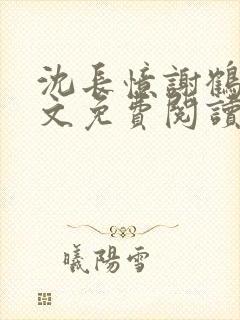 沈長憶謝鶴
文免費閱讀
曦陽雪